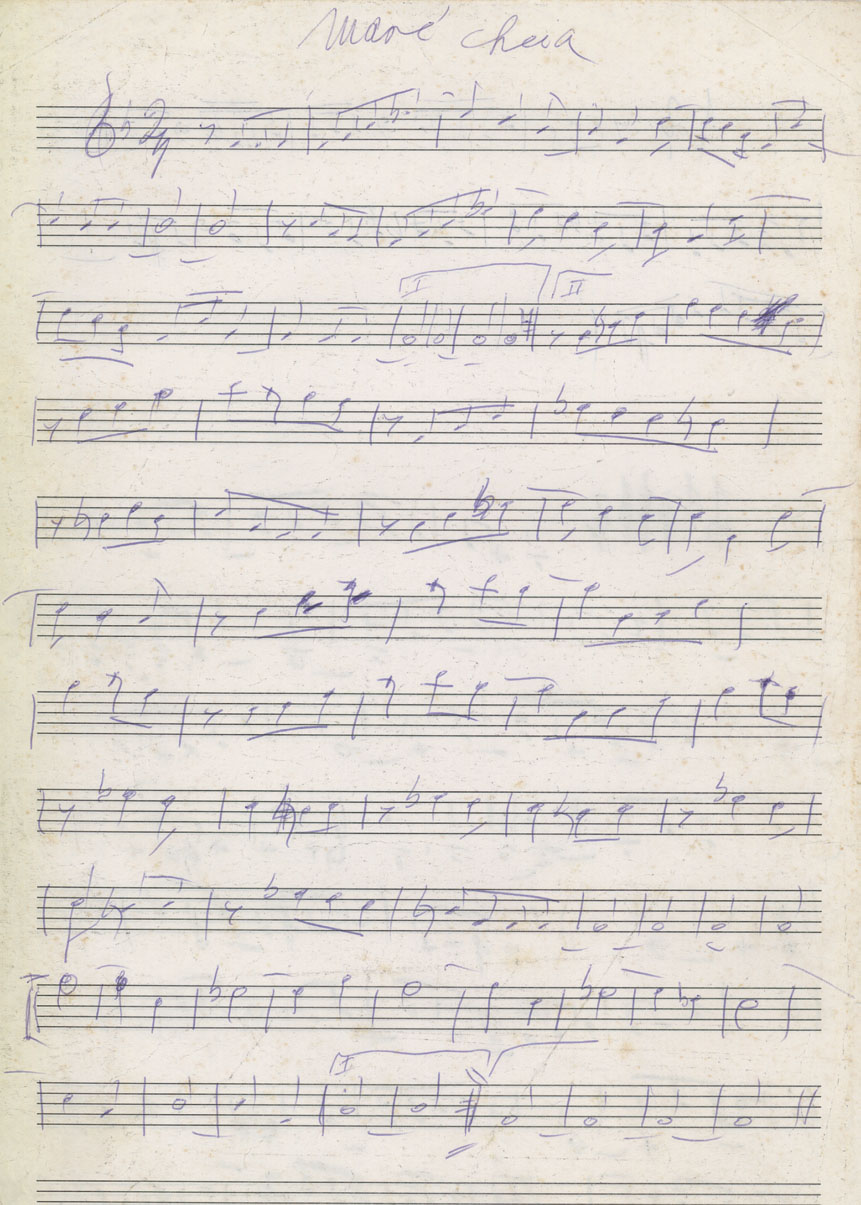 Maré cheia
2/4
I
II
I